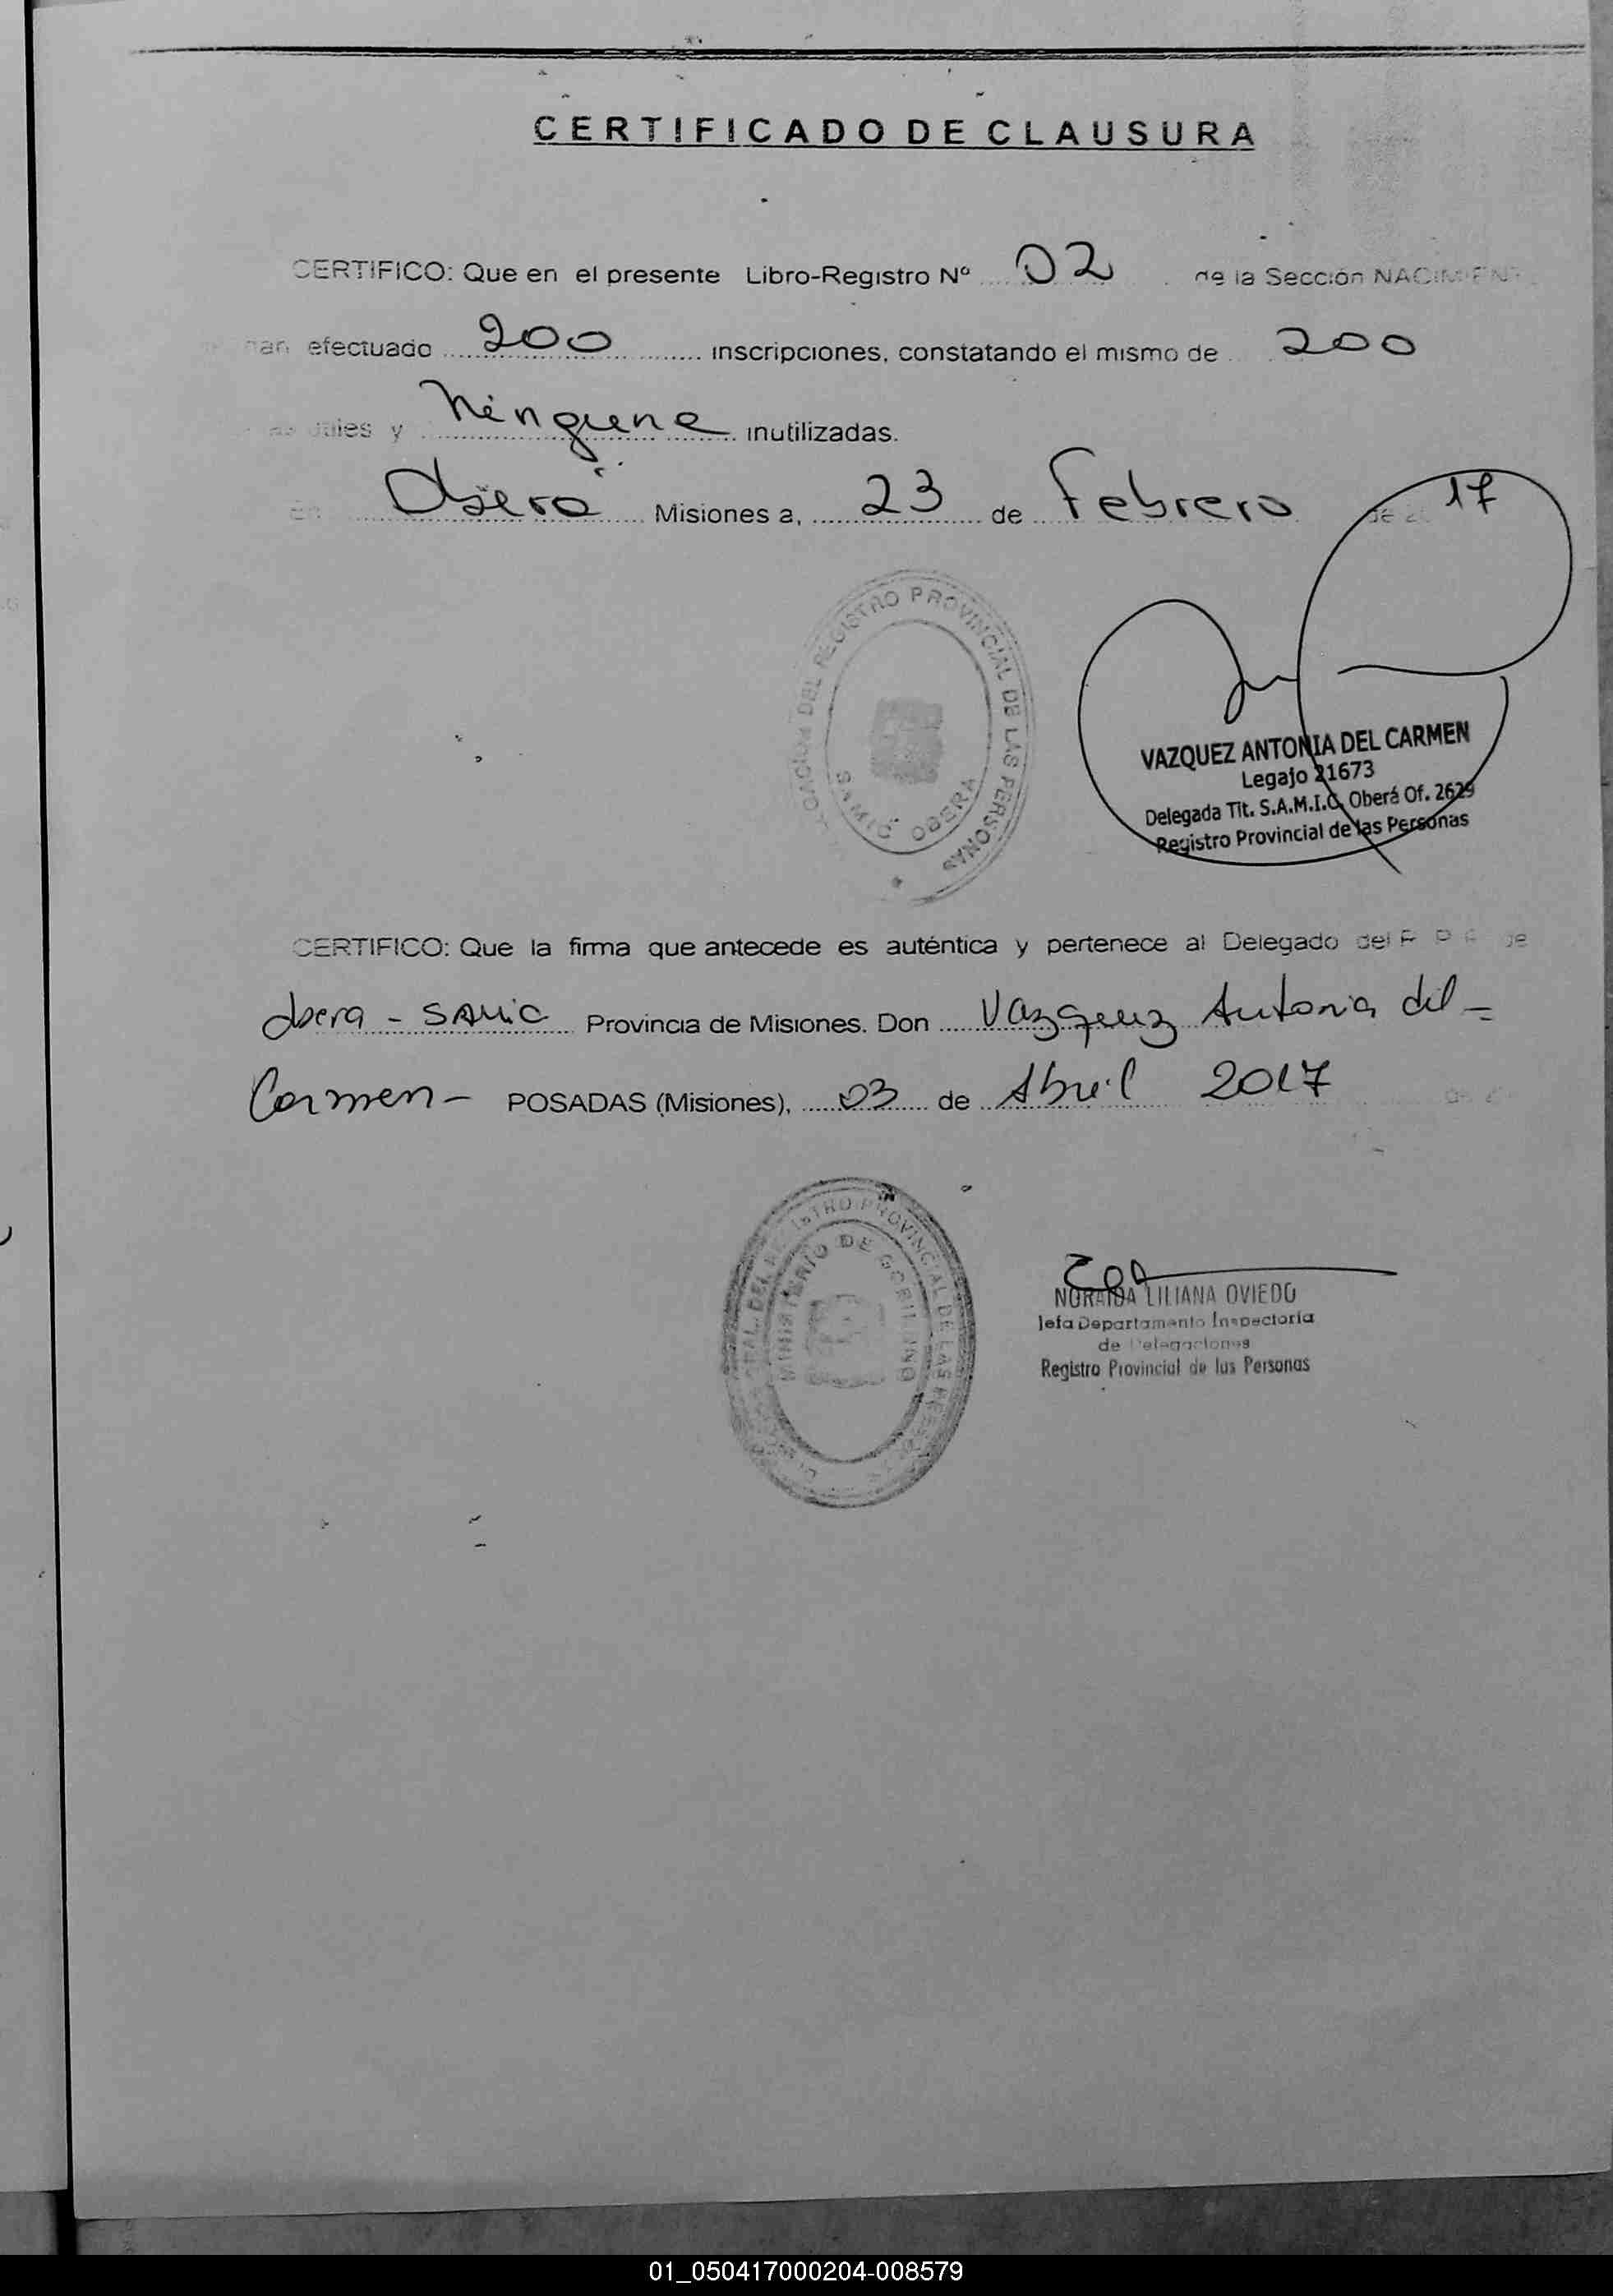 CERTIFICADO DE CLAUSURA
CERTIFICO: Que en el presente Libro-Registro Nº 02 de la Sección
han efectuado 200 inscripciones, constatando el mismo de 200
y Ninguna inutilizadas.
En Oberá Misiones a, 23 de Febrero de 17
REGISTRO PROVINCIAL DE LAS PERSONAS
OBERA
VAZQUEZ ANTONIA DEL CARMEN
Legajo 21673
Delegada Tit. S.A.M.I.C. Oberá Of. 2629
Registro Provincial de las Personas
CERTIFICO: Que la firma que antecede es auténtica y pertenece al Delegado del
Obera - SAMIC Provincia de Misiones. Don Vazquez Antonia del -
Carmen - POSADAS (Misiones), 03 de Abril 2017
PROVINCIAL DE LAS
MINISTERIO DE GOBIERNO
NORAIDA LILIANA OVIEDO
Jefa Departamento Inspectoria
de Delegaciones
Registro Provincial de las Personas
01_050417000204-008579